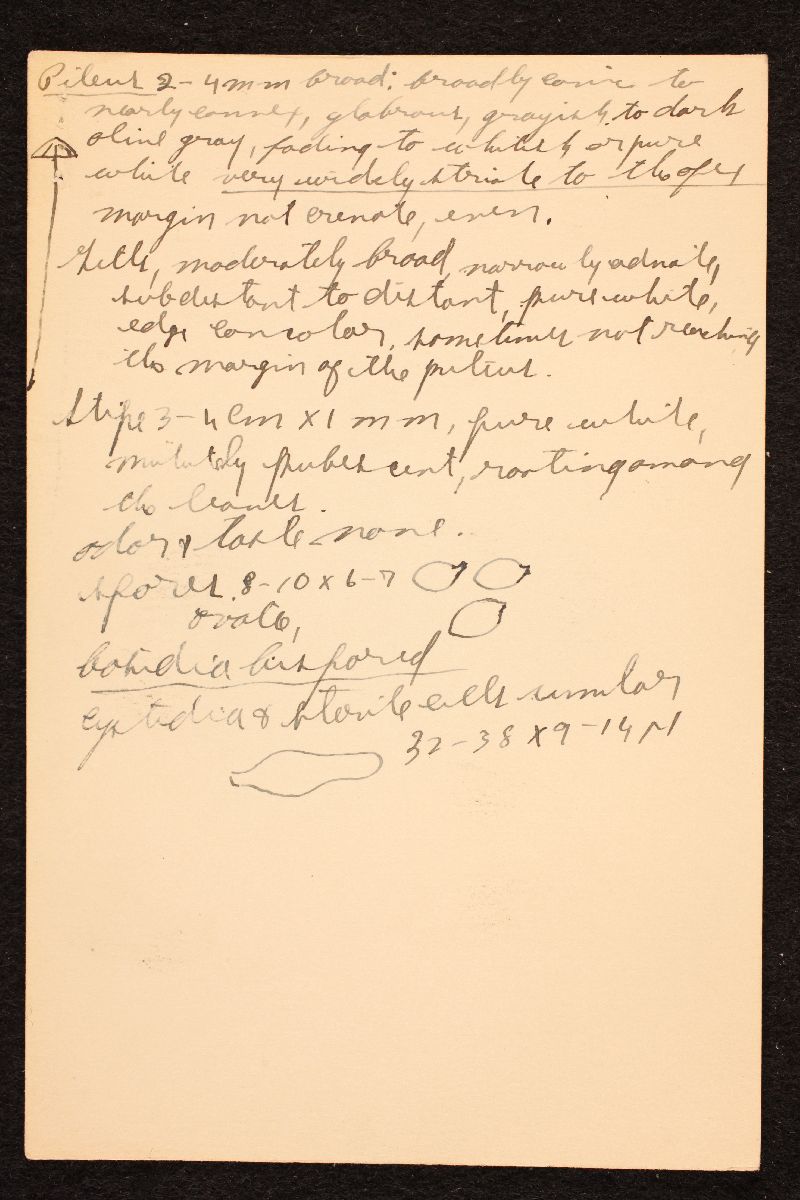 Pileus 2-4 mm broad: broadly conic to
nearly convex, glabrous, grayish to dark
olive gray, fading to whitish or pure
white very widely striate to the apex
margin not crenate, even.
Gills, moderately broad, narrowly adnate,
subdistant to distant, pure white,
edge concolor, sometimes not reaching
the margin of the pileus.
Stipe 3-4 cm x 1 mm, pure white,
minutely pubescent, rooting among
the leaves.
odor & taste none.
spores 8-10 x 6-7
ovate,
basidia bispored
cystidia & sterile cells similar
32-38 x 9-14 µ